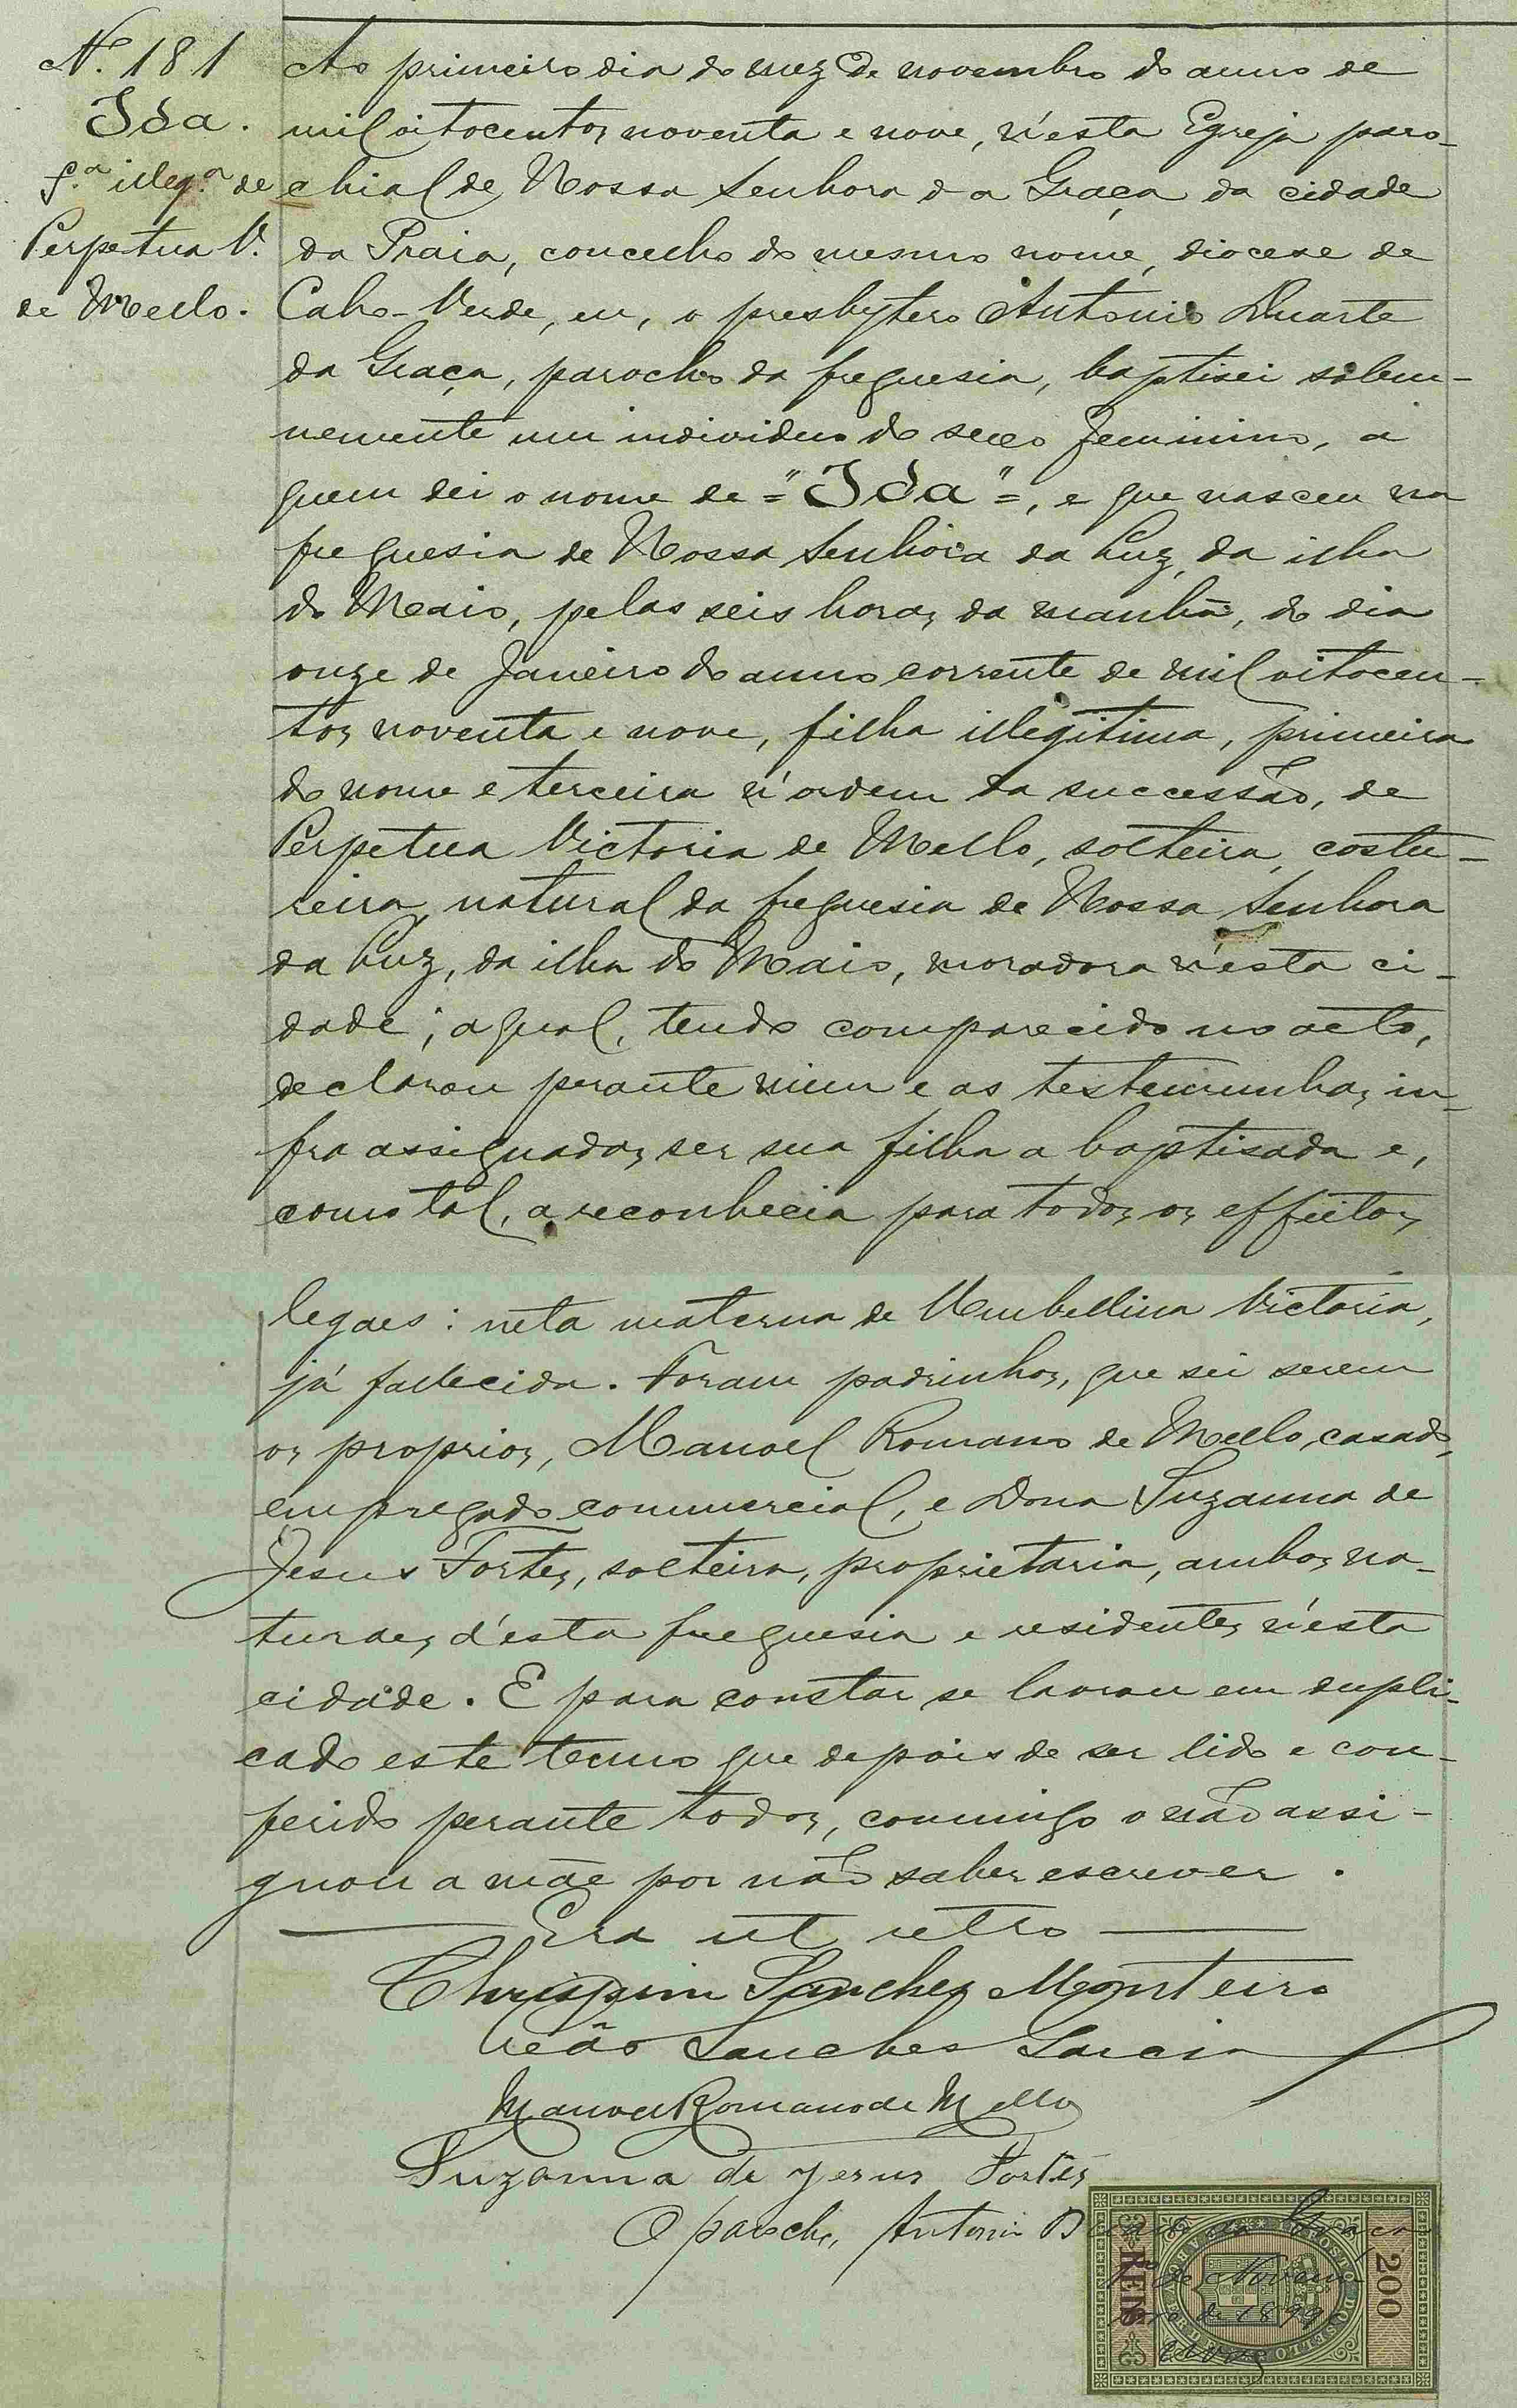 N.º 181
Ida.
f.ª illeg.ª de
Perpetua V.
de Mello.
Ao primeiro dia do mez de novembro do anno de
mil oitocentos noventa e nove, n'esta Egreja paro-
chial de Nossa Senhora da Graça da cidade
da Praia, concelho do mesmo nome, diocese de
Cabo-Verde, eu, o presbytero Antonio Duarte
da Graça, parocho da freguesia, baptisei solem-
nemente um individuo do sexo feminino, a
quem dei o nome de ="Ida"=, e que nasceu na
freguesia de Nossa Senhora da Luz, da ilha
do Maio, pelas seis horas da manhã, do dia
onze de Janeiro do anno corrente de mil oitocen-
tos noventa e nove, filha illegitima, primeira
do nome e terceira n'ordem da successão, de
Perpetua Victoria de Mello, solteira, costu-
reira, natural da freguesia de Nossa Senhora
da Luz, da ilha do Maio, moradora n'esta ci-
dade; a qual, tendo comparecido no acto,
declarou perante mim e as testemunhas in-
fra assignadas ser sua filha a baptisada e,
como tal, a reconhecia para todos os effeitos
legaes: neta materna de Umbellina Victoria,
já fallecida. Foram padrinhos, que sei serem
os proprios, Manoel Romano de Mello, casado,
empregado commercial, e Dona Suzanna de
Jesus Fortes, solteira, proprietaria, ambos na-
turaes d'esta freguesia e residentes n'esta
cidade. E para constar se lavrou em dupli-
cado este termo que depois de ser lido e con-
ferido perante todos, commigo o não assi-
gnou a mãe por não saber escrever.
Era ut retro
Chrispim Sanches Monteiro
Leão Sanches Garcia
Manoel Romano de Mello
Suzanna de Jesus Fortes
O parocho, Antonio Duarte da Graça
1º de Novem
bro de 1899
200
REIS